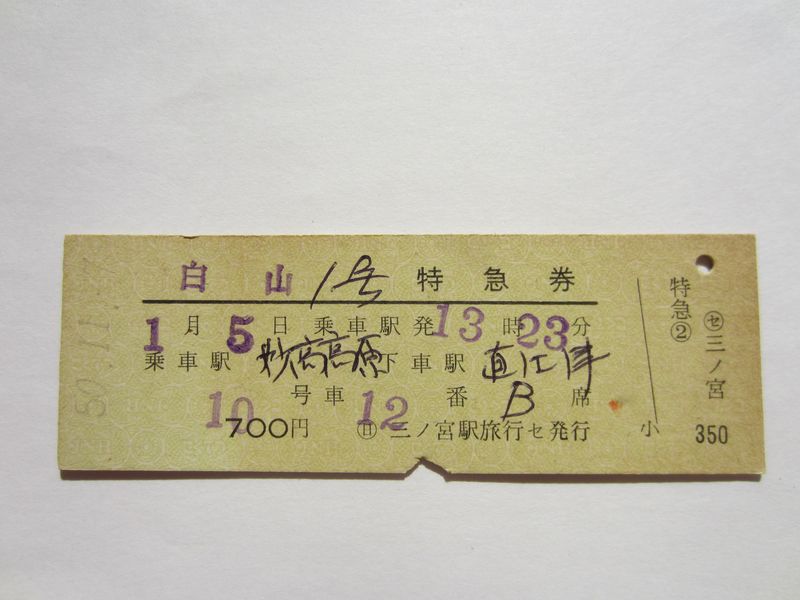 白山 1号 特急券
1月5日 乗車駅発 13時23分
乗車駅 妙高高原 下車駅 直江津
10号車 12番 B席
700円 ㊐三ノ宮駅旅行セ発行
特急②
㋝三ノ宮
小 350